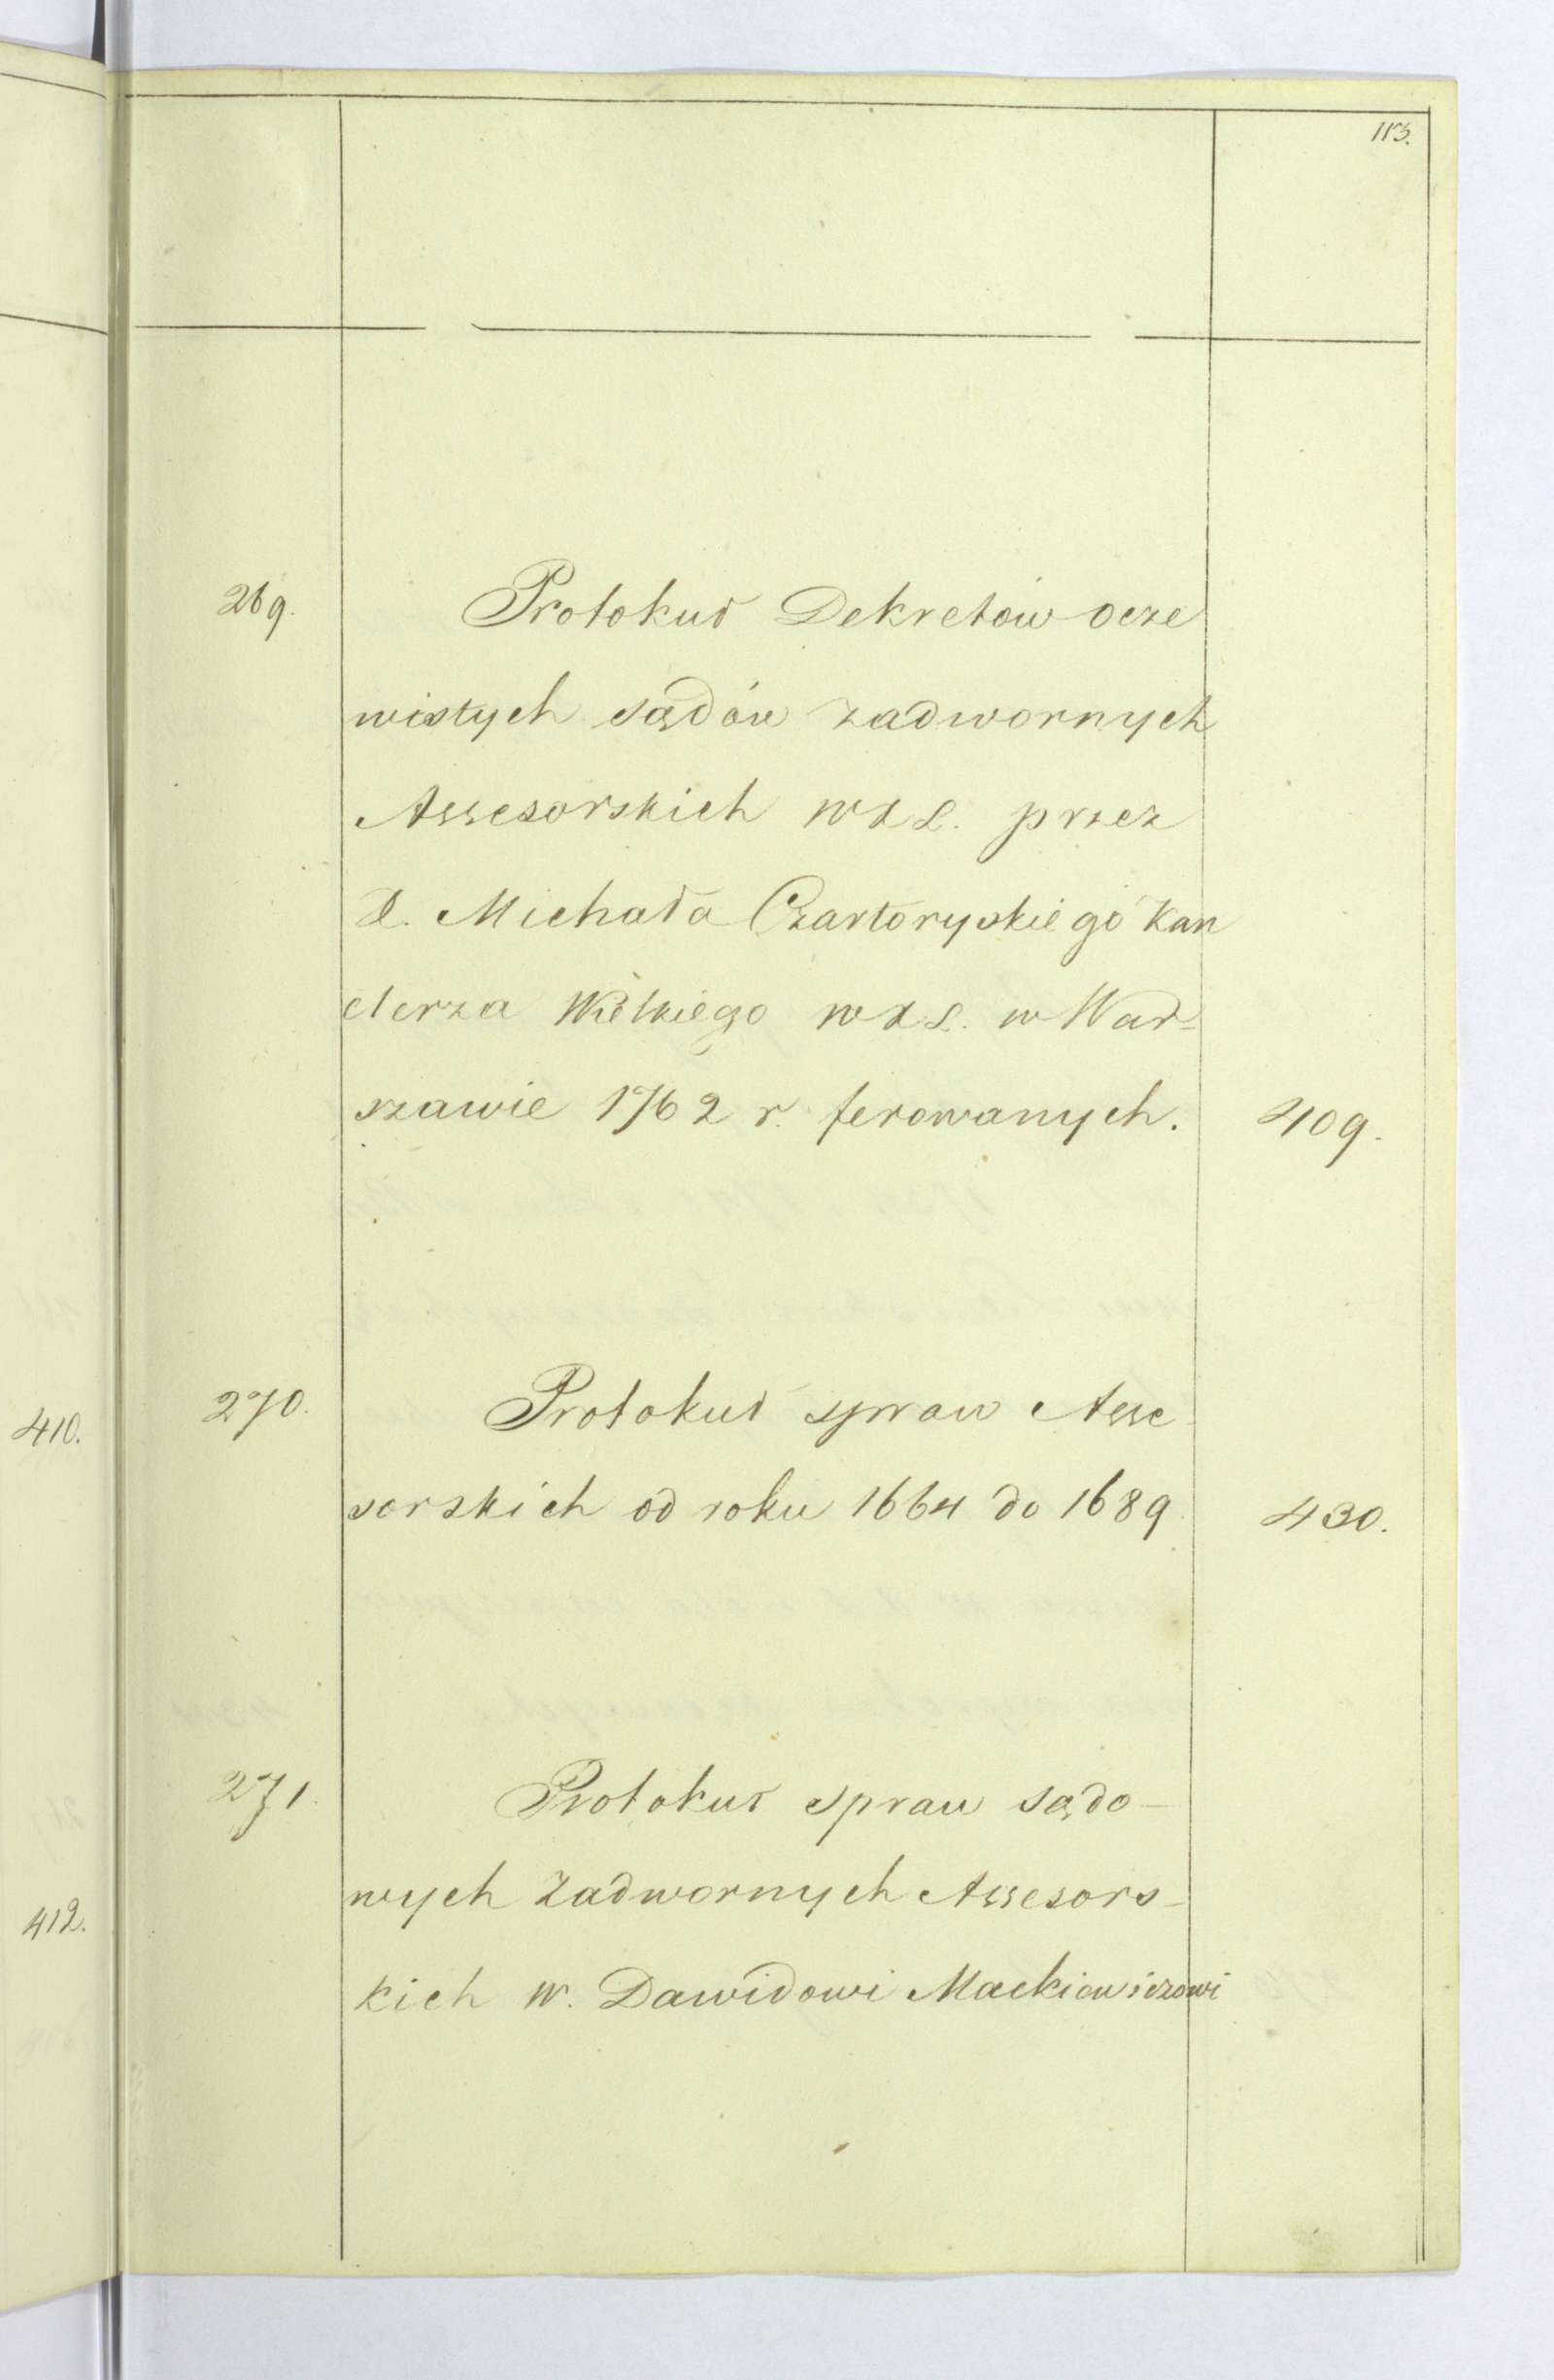 113.
269. Protokuł Dekretów ocze
wistych sądów zadwornych
Assesorskich WXL. przez
X. Michała Czartoryskiego Kan
clerza Wielkiego WXL. w War=
szawie 1762 r. ferowanych. 409.
270. Protokuł spraw Asse
sorskich od roku 1664 do 1689 430.
410.
271. Protokuł spraw sądo-
wych Zadwornych Assesors-
412.
kich W. Dawidowi Mackiewiczowi